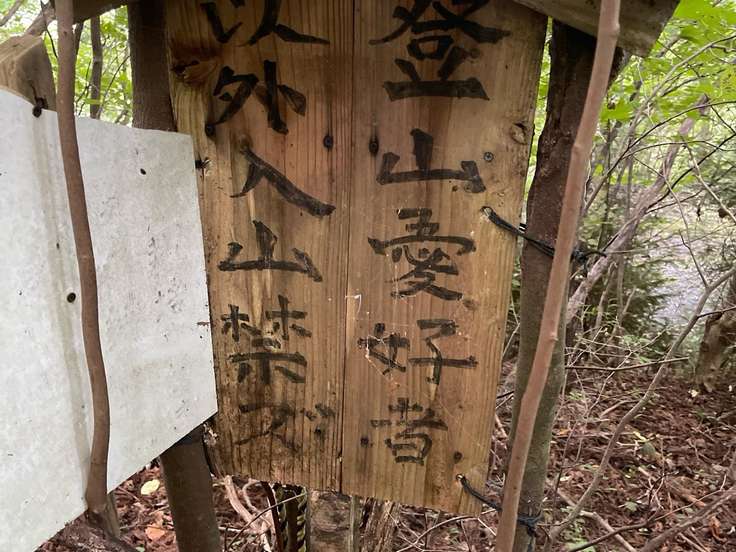 登山愛好者
以外入山禁ズ